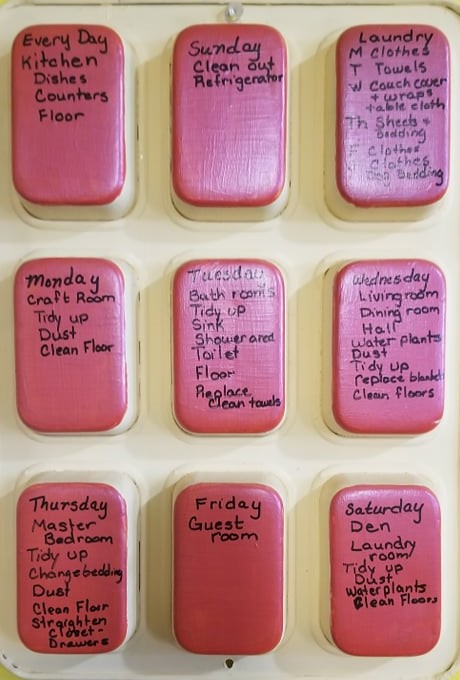 Every Day
Kitchen
Dishes
Counters
Floor
Sunday
Clean out
Refrigerator
Laundry
M Clothes
T Towels
W Couch cover
+ wraps
table cloth
Th Sheets +
Bedding
F Clothes
S Clothes
Dog Bedding
Monday
Craft Room
Tidy up
Dust
Clean Floor
Tuesday
Bath rooms
Tidy up
Sink
Shower area
Toilet
Floor
Replace
Clean towels
Wednesday
Living room
Dining room
Hall
Water plants
Dust
Tidy up
replace blankets
Clean floors
Thursday
Master
Bedroom
Tidy up
Change bedding
Dust
Clean Floor
Straighten
Closet -
Drawers
Friday
Guest
room
Saturday
Den
Laundry
room
Tidy up
Dust
Water plants
Clean Floors